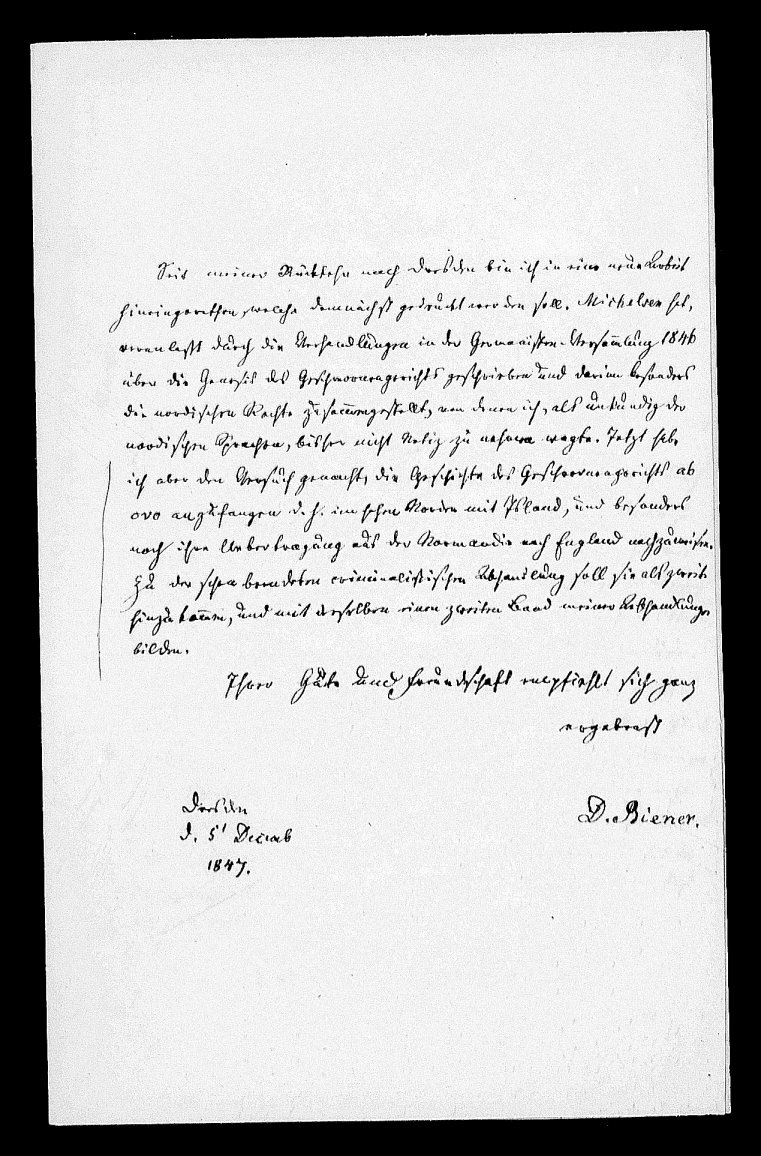 Seit meiner Rückkehr nach Dresden bin ich in eine neue Arbeit
hineingerathen, welche demnächst gedruckt werden soll. Michelsen hat,
veranlaßt durch die Verhandlungen in der Germanisten-Versammlung 1846
über die Genesis des Geschwornengerichts geschrieben und darin besonders
die nordischen Rechte zusammengestellt, von denen ich, als unkundig der
nordischen Sprachen, bisher nicht Notiz zu nehmen wagte. Jetzt habe
ich aber den Versuch gemacht, die Geschichte des Geschwornengerichts ab
ovo anzufangen d. h. im hohen Norden mit Island, und besonders
noch ihre Uebertragung aus der Normandie nach England nachzuweisen.
Zu der schon beendeten criminalistischen Abhandlung soll sie als zweite
hinzukommen, und mit derselben einen zweiten Band meiner Abhandlungen
bilden.
Ihrer Güte und Freundschaft empfiehlt sich ganz
ergebenst
Dresden
d. 5t Decemb
1847.
D. Biener.